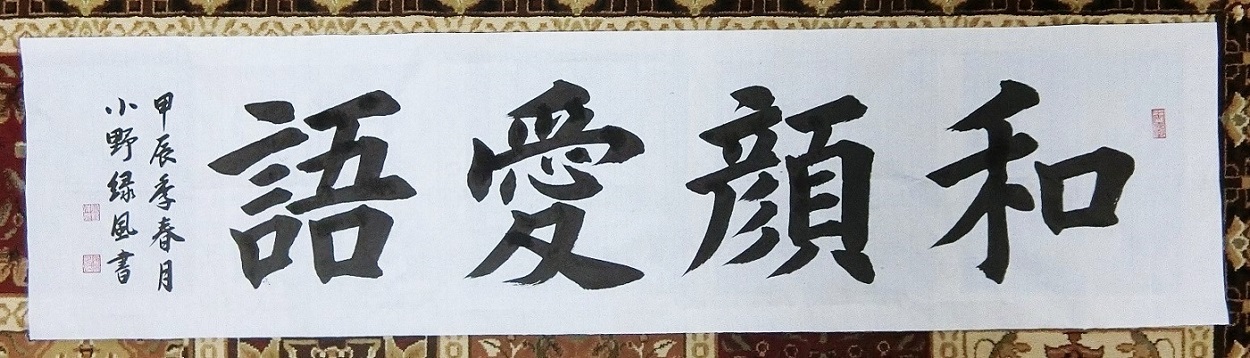 和顔愛語
甲辰季春月
小野緑風書